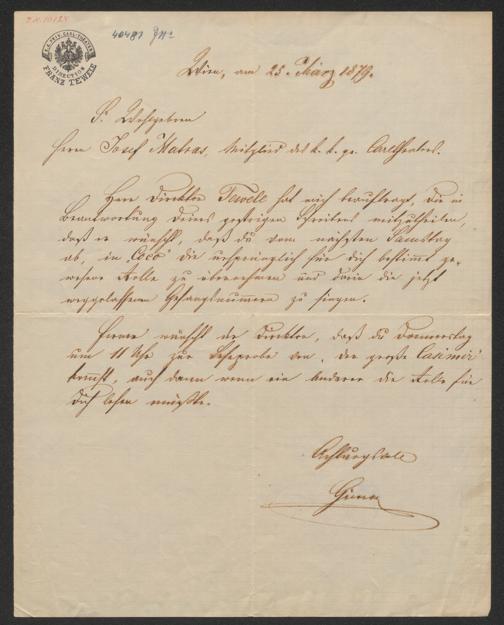 Z.N. 10128
40481 Jn=
K.K. PRIV. CARL-THEATER
DIRECTION
FRANZ TEWELE
Wien, am 25. März 1879.
S. Wohlgeboren
Herrn Josef Matras, Mitglied des k. k. pr. Carltheaters.
Herr Direktor Tewele hat mich beauftragt, dir in
Beantwortung deines gestrigen Schreibens mitzutheilen,
daß er wünscht, daß du vom nächsten Samstag
ab, in "Coco" die ursprünglich für dich bestimmt ge-
wesene Rolle zu übernehmen und darin die jetzt
weggelassenen Gesangsnummern zu singen.
Ferner wünscht der Direktor, daß du Donnerstag
um 11 Uhr zur Leseprobe von "der große Casimir"
kommst, auch dann wenn ein Anderer die Rolle für
dich lesen müßte.
Achtungsvoll